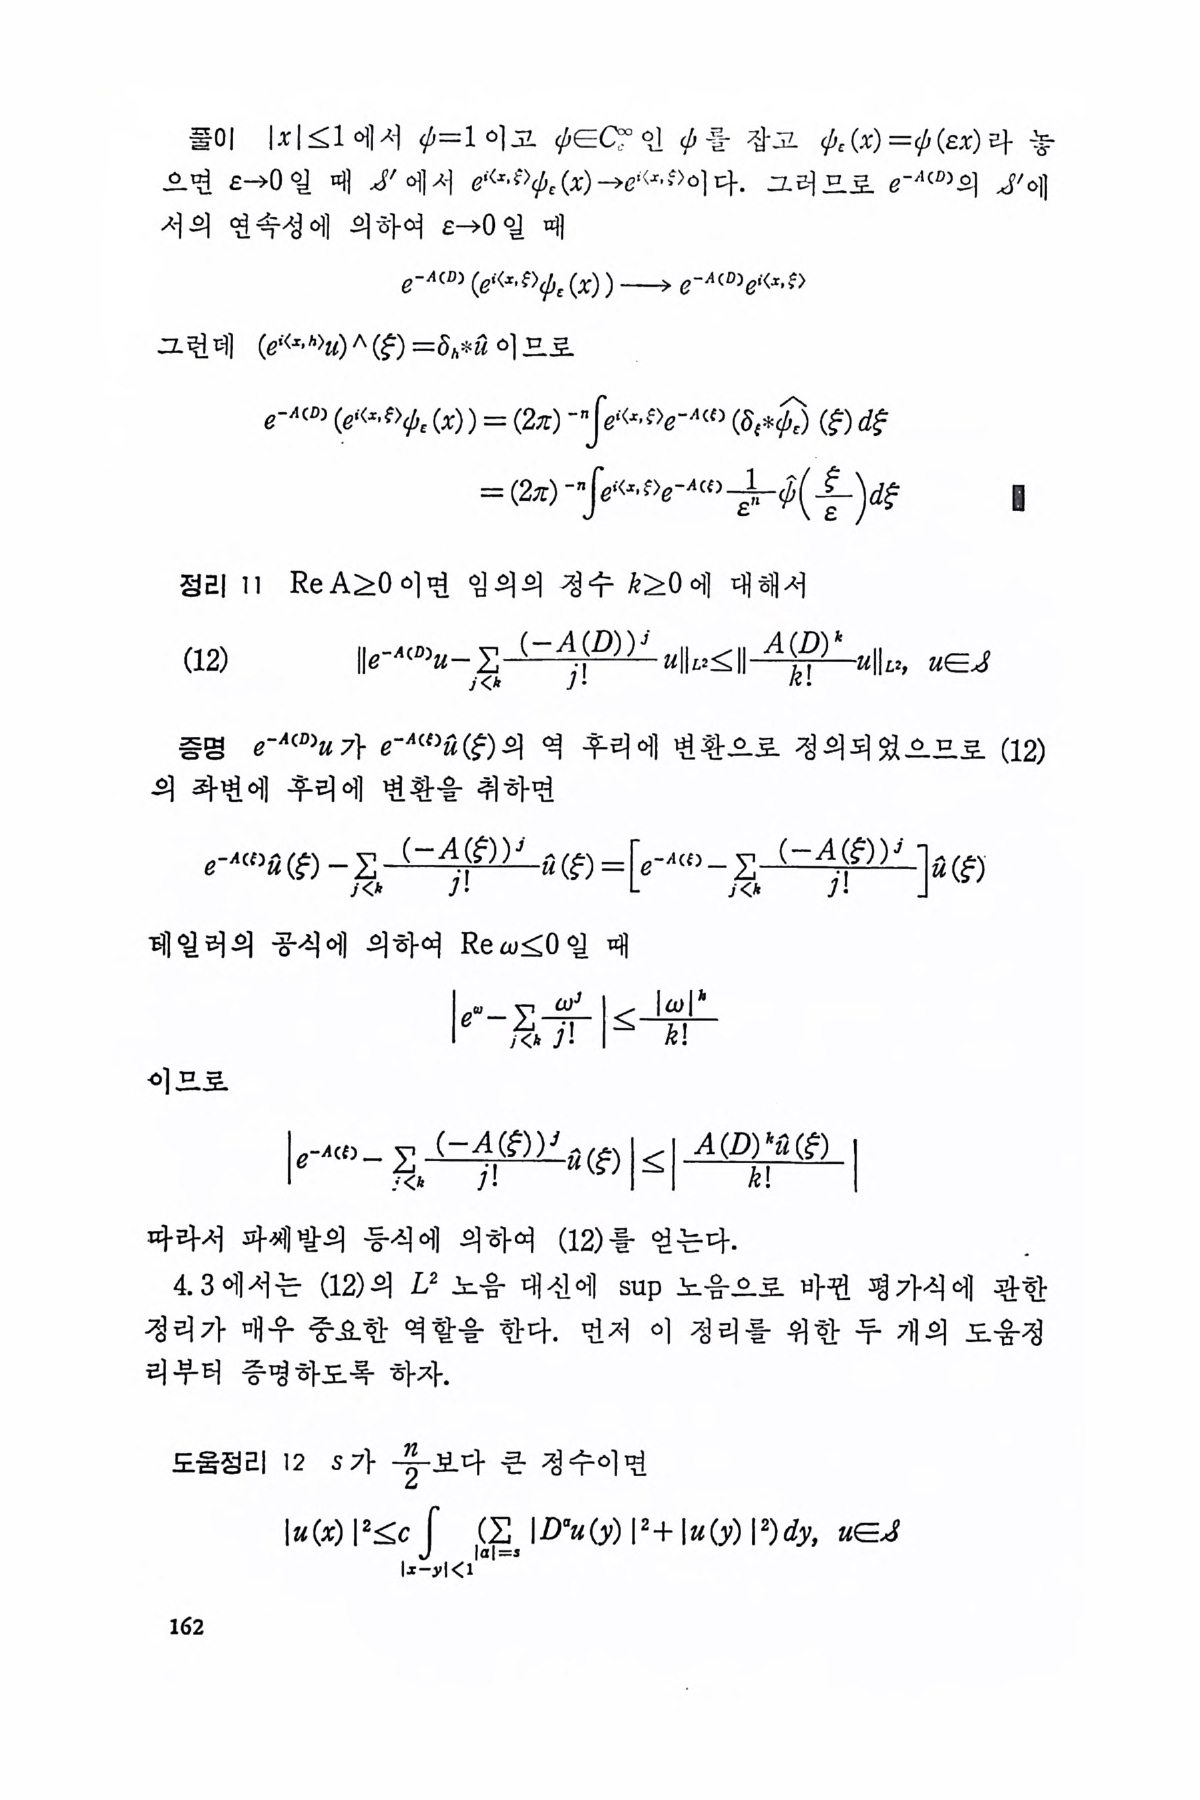 풀이 |x|≤1에서 ψ=1이고 ψ∈C_c^∞인 ψ를 잡고 ψ_ε(x)=ψ(εx)라 놓
으면 ε→0일 때 𝒮′에서 e^{i<x,ξ>}ψ_ε(x)→e^{i<x,ξ>}이다. 그러므로 e^{-A(D)}의 𝒮′에
서의 연속성에 의하여 ε→0일 때
e^{-A(D)}(e^{i<x,ξ>}ψ_ε(x))⟶e^{-A(D)}e^{i<x,ξ>}
그런데 (e^{i<x,h>}u)^(ξ)=δ_h*û이므로
e^{-A(D)}(e^{i<x,ξ>}ψ_ε(x))=(2π)^{-n}∫e^{i<x,ξ>}e^{-A(ξ)}(δ_ξ*\widehat{ψ_ε})(ξ)dξ
=(2π)^{-n}∫e^{i<x,ξ>}e^{-A(ξ)}\frac{1}{ε^n}\hat{ψ}(\frac{ξ}{ε})dξ ▮
정리 11 Re A≥0이면 임의의 정수 k≥0에 대해서
(12) ‖e^{-A(D)}u-∑_{j<k}\frac{(-A(D))^j}{j!}u‖_{L²}≤‖\frac{A(D)^k}{k!}u‖_{L²}, u∈𝒮
증명 e^{-A(D)}u가 e^{-A(ξ)}û(ξ)의 역 후리에 변환으로 정의되었으므로 (12)
의 좌변에 후리에 변환을 취하면
e^{-A(ξ)}û(ξ)-∑_{j<k}\frac{(-A(ξ))^j}{j!}û(ξ)=[e^{-A(ξ)}-∑_{j<k}\frac{(-A(ξ))^j}{j!}]û(ξ)
테일러의 공식에 의하여 Re ω≤0일 때
|e^ω-∑_{j<k}\frac{ω^j}{j!}|≤\frac{|ω|^k}{k!}
이므로
|e^{-A(ξ)}-∑_{j<k}\frac{(-A(ξ))^j}{j!}û(ξ)|≤|\frac{A(D)^kû(ξ)}{k!}|
따라서 파쎄발의 등식에 의하여 (12)를 얻는다.
4.3에서는 (12)의 L² 노음 대신에 sup 노음으로 바뀐 평가식에 관한
정리가 매우 중요한 역할을 한다. 먼저 이 정리를 위한 두 개의 도움정
리부터 증명하도록 하자.
도움정리 12 s가 \frac{n}{2}보다 큰 정수이면
|u(x)|²≤c∫_{|x-y|<1}(∑_{|α|=s}|D^αu(y)|²+|u(y)|²)dy, u∈𝒮
162